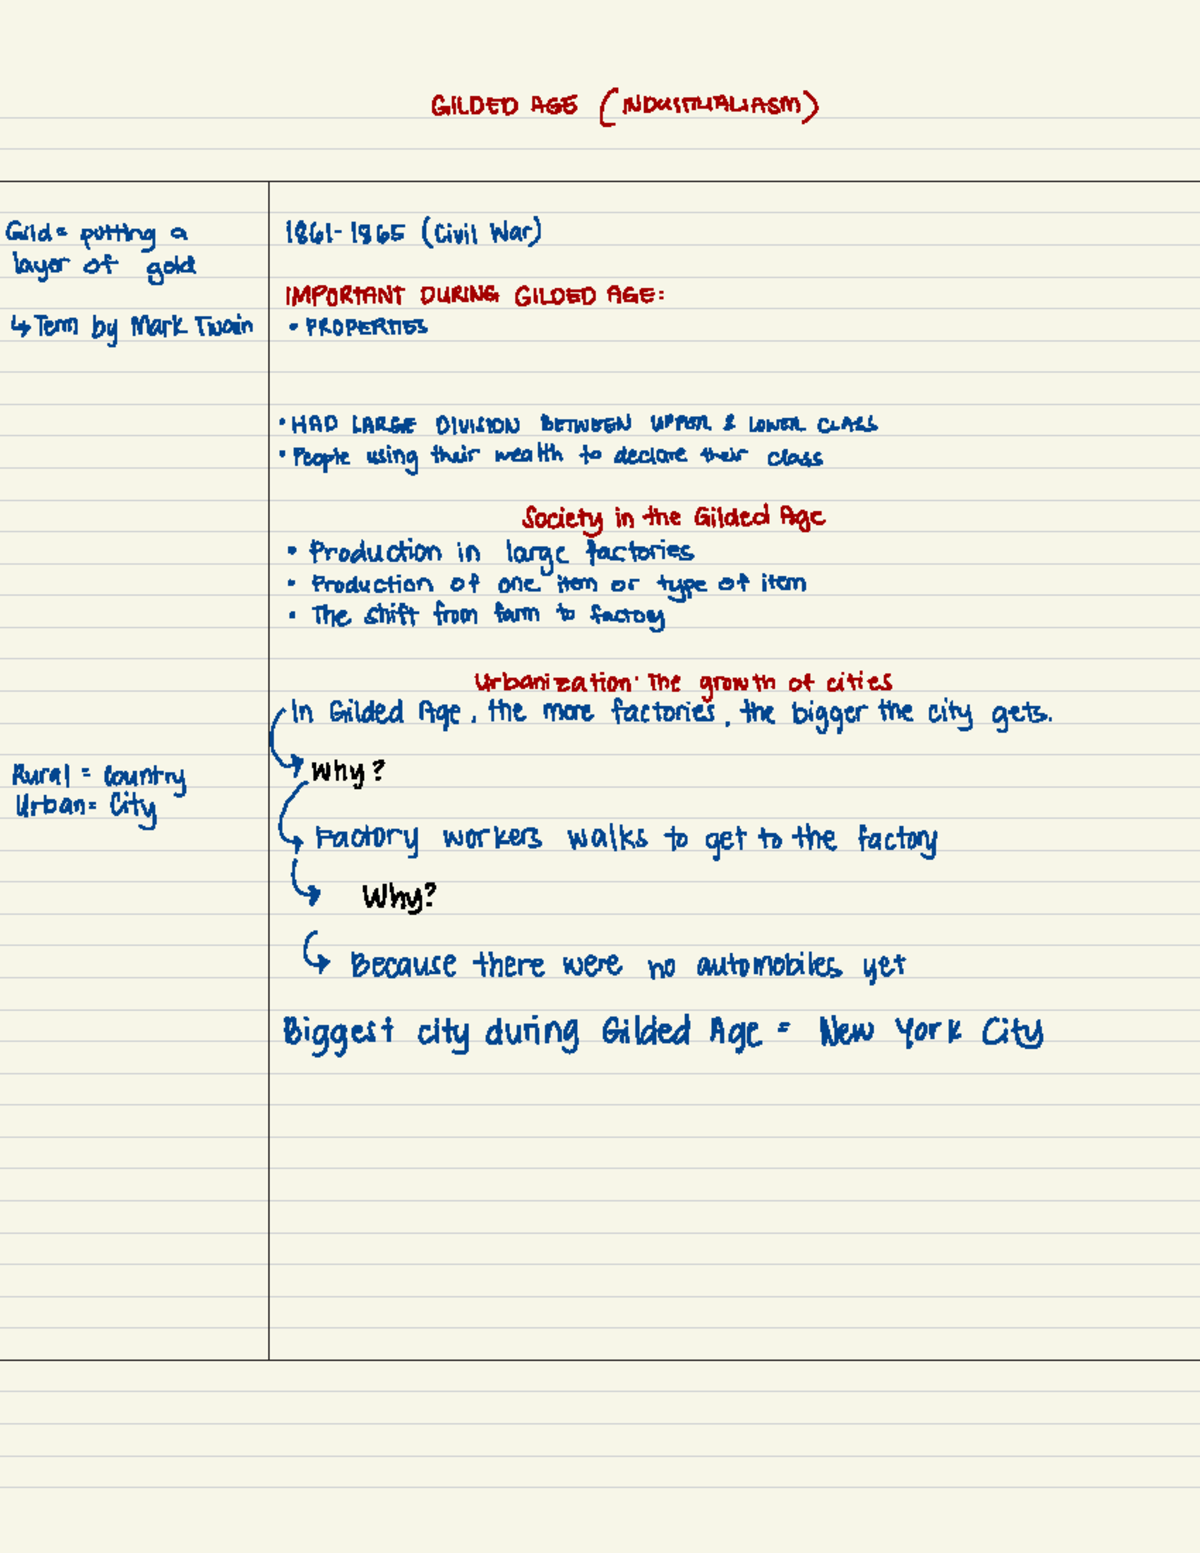 GILDED AGE (INDUSTRIALIASM)
Gild= putting a
layer of gold
↳ Term by Mark Twain
1861-1865 (Civil War)
IMPORTANT DURING GILDED AGE:
• PROPERTIES
• HAD LARGE DIVISION BETWEEN UPPER & LOWER CLASS
• People using their wealth to declare their class
Society in the Gilded Age
• Production in large factories
• Production of one item or type of item
• The shift from farm to factoy
Urbanization: The growth of cities
In Gilded Age, the more factories, the bigger the city gets.
Why?
Rural = Country
Urban= City
Factory workers walks to get to the factory
Why?
Because there were no automobiles yet
Biggest city during Gilded Age = New York City